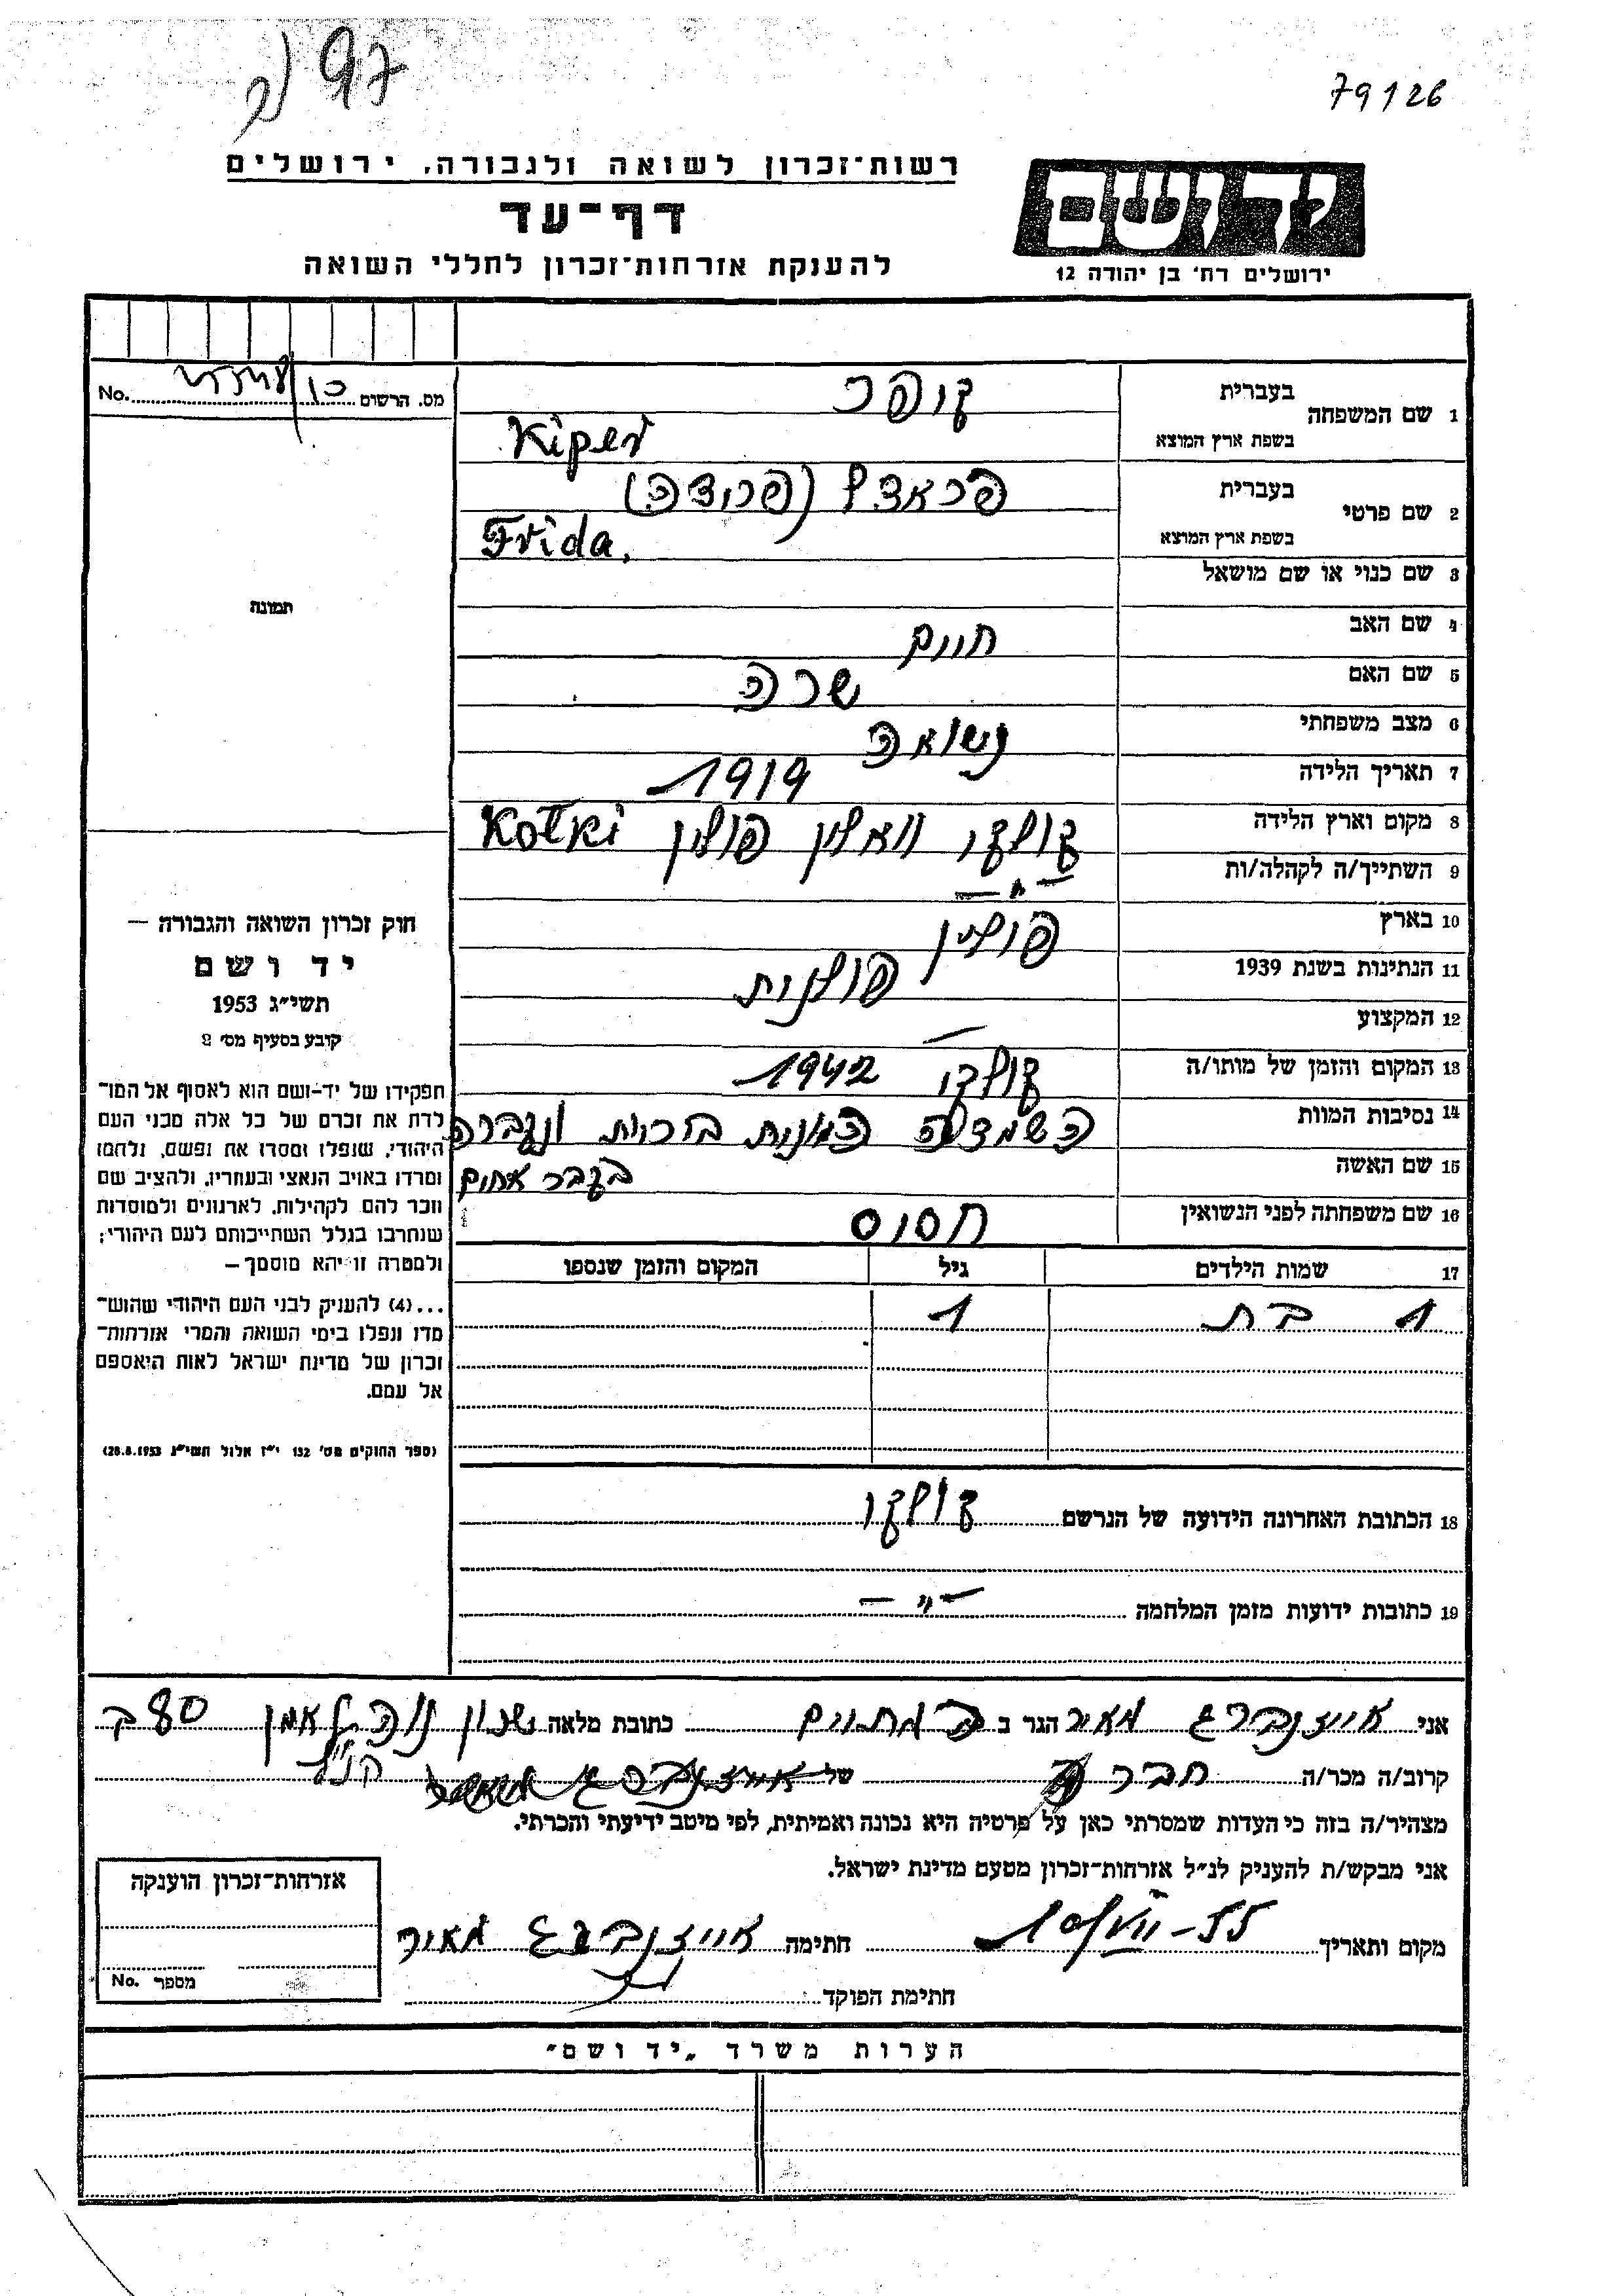 97
79126
רשות־זכרון לשואה ולגבורה, ירושלים
יד ושם
דף־עד
ירושלים רח׳ בן יהודה 12
להענקת אזרחות־זכרון לחללי השואה
No. מס. הרשום
תמונה
1 שם המשפחה בעברית קופר
בשפת ארץ המוצא Kiper
2 שם פרטי בעברית פראדל (פרידה)
בשפת ארץ המוצא Frida.
3 שם כנוי או שם מושאל
4 שם האב חיים
5 שם האם שרה
6 מצב משפחתי נשואה
7 תאריך הלידה 1919
8 מקום וארץ הלידה קולקי וואלין פולין Kołki
9 השתייך/ה לקהלה/ות — " —
10 בארץ פולין
11 הנתינות בשנת 1939 פולנית
12 המקצוע —
13 המקום והזמן של מותו/ה קולקי 1942
14 נסיבות המוות בקבר אחים
15 שם האשה
16 שם משפחתה לפני הנשואין חסיס
17 שמות הילדים גיל המקום והזמן שנספו
1 בת 1
18 הכתובת האחרונה הידועה של הנרשם קולקי
19 כתובות ידועות מזמן המלחמה — " —
חוק זכרון השואה והגבורה —
יד ושם
תשי״ג 1953
קובע בסעיף מס׳ 2
תפקידו של יד-ושם הוא לאסוף אל המו־
לדת את זכרם של כל אלה מבני העם
היהודי, שנפלו ומסרו את נפשם, נלחמו
ומרדו באויב הנאצי ובעוזריו, ולהציב שם
וזכר להם לקהילות, לארגונים ולמוסדות
שנחרבו בגלל השתייכותם לעם היהודי;
ולמטרה זו יהא מוסמך —
...(4) להעניק לבני העם היהודי שהוש־
מדו ונפלו בימי השואה והמרי אזרחות־
זכרון של מדינת ישראל לאות היאספם
אל עמם.
(ספר החוקים מס׳ 132 י״ז אלול תשי״ג 28.8.1953)
אני אייזנברג מאיר הגר ב כתובת מלאה שכון 80
קרוב/ה מכר/ה חבר של
מצהיר/ה בזה כי העדות שמסרתי כאן על פרטיה היא נכונה ואמיתית, לפי מיטב ידיעתי והכרתי.
אני מבקש/ת להעניק לנ״ל אזרחות־זכרון מטעם מדינת ישראל.
מקום ותאריך חתימה אייזנברג מאיר
חתימת הפוקד
אזרחות־זכרון הוענקה
מספר No.
הערות משרד „יד ושם״